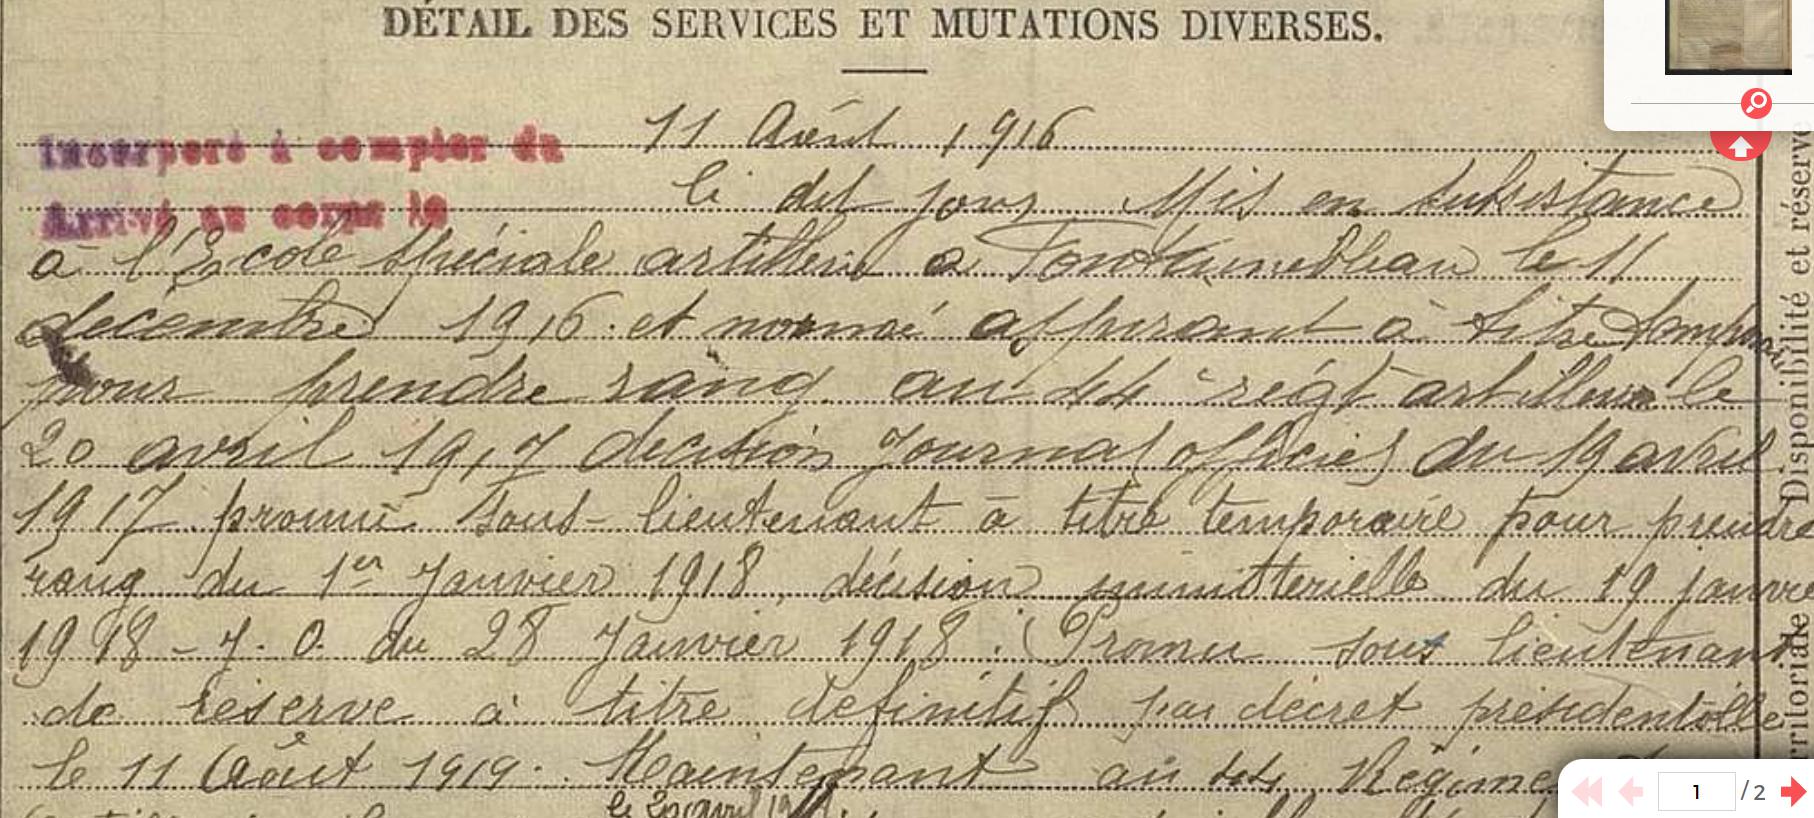 DÉTAIL DES SERVICES ET MUTATIONS DIVERSES.
Incorporé à compter du 11 Août 1916
Arrivé au corps le le dit jour Mis en subsistance
à l'Ecole spéciale artillerie a Fontainebleau le 11
décembre 1916. et nommé aspirant à titre
pour prendre rang au 44e régt artillerie le
20 avril 1917 décision Journal officiel du 19 avril
1917. promu sous-lieutenant à titre temporaire pour prendre
rang du 1er Janvier 1918, décision ministerielle du 19 janvie
1918 - J. O. du 28 Janvier 1918. (Promu sous lieutenant
de réserve à titre définitif par décret présidentielle
le 11 Août 1919. Maintenant au 44e Régime
le 20 avril
Disponibilité et réserve
rritoriale
1 / 2